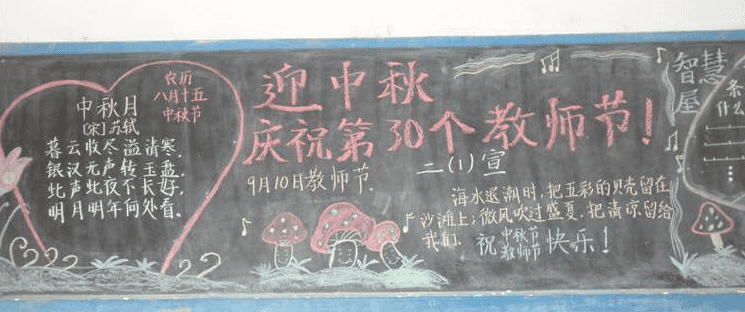 中秋月
[宋]苏轼
暮云收尽溢清寒,
银汉无声转玉盘.
此声此夜不长好,
明月明年何处看。
农历
八月十五
中秋节
迎中秋
庆祝第30个教师节!
二(1)宣
9月10日教师节.
海水退潮时,把五彩的贝壳留在
沙滩上;微风吹过盛夏.把清凉留给
我们.
祝中秋节教师节快乐!
智慧
屋
条
什么